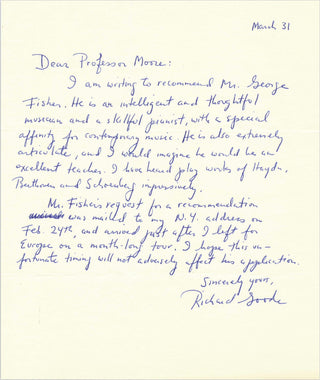 March 31
Dear Professor Moore:
I am writing to recommend Mr. George
Fisher. He is an intelligent and thoughtful
musician and a skillful pianist, with a special
affinity for contemporary music. He is also extremely
articulate, and I would imagine he would be an
excellent teacher. I have heard play works of Haydn,
Beethoven and Schoenberg impressively.
Mr. Fisher's request for a recommendation
was mailed to my N.Y. address on
Feb. 24th, and arrived just after I left for
Europe on a month-long tour. I hope this un-
fortunate timing will not adversely affect his application.
Sincerely yours,
Richard Goode